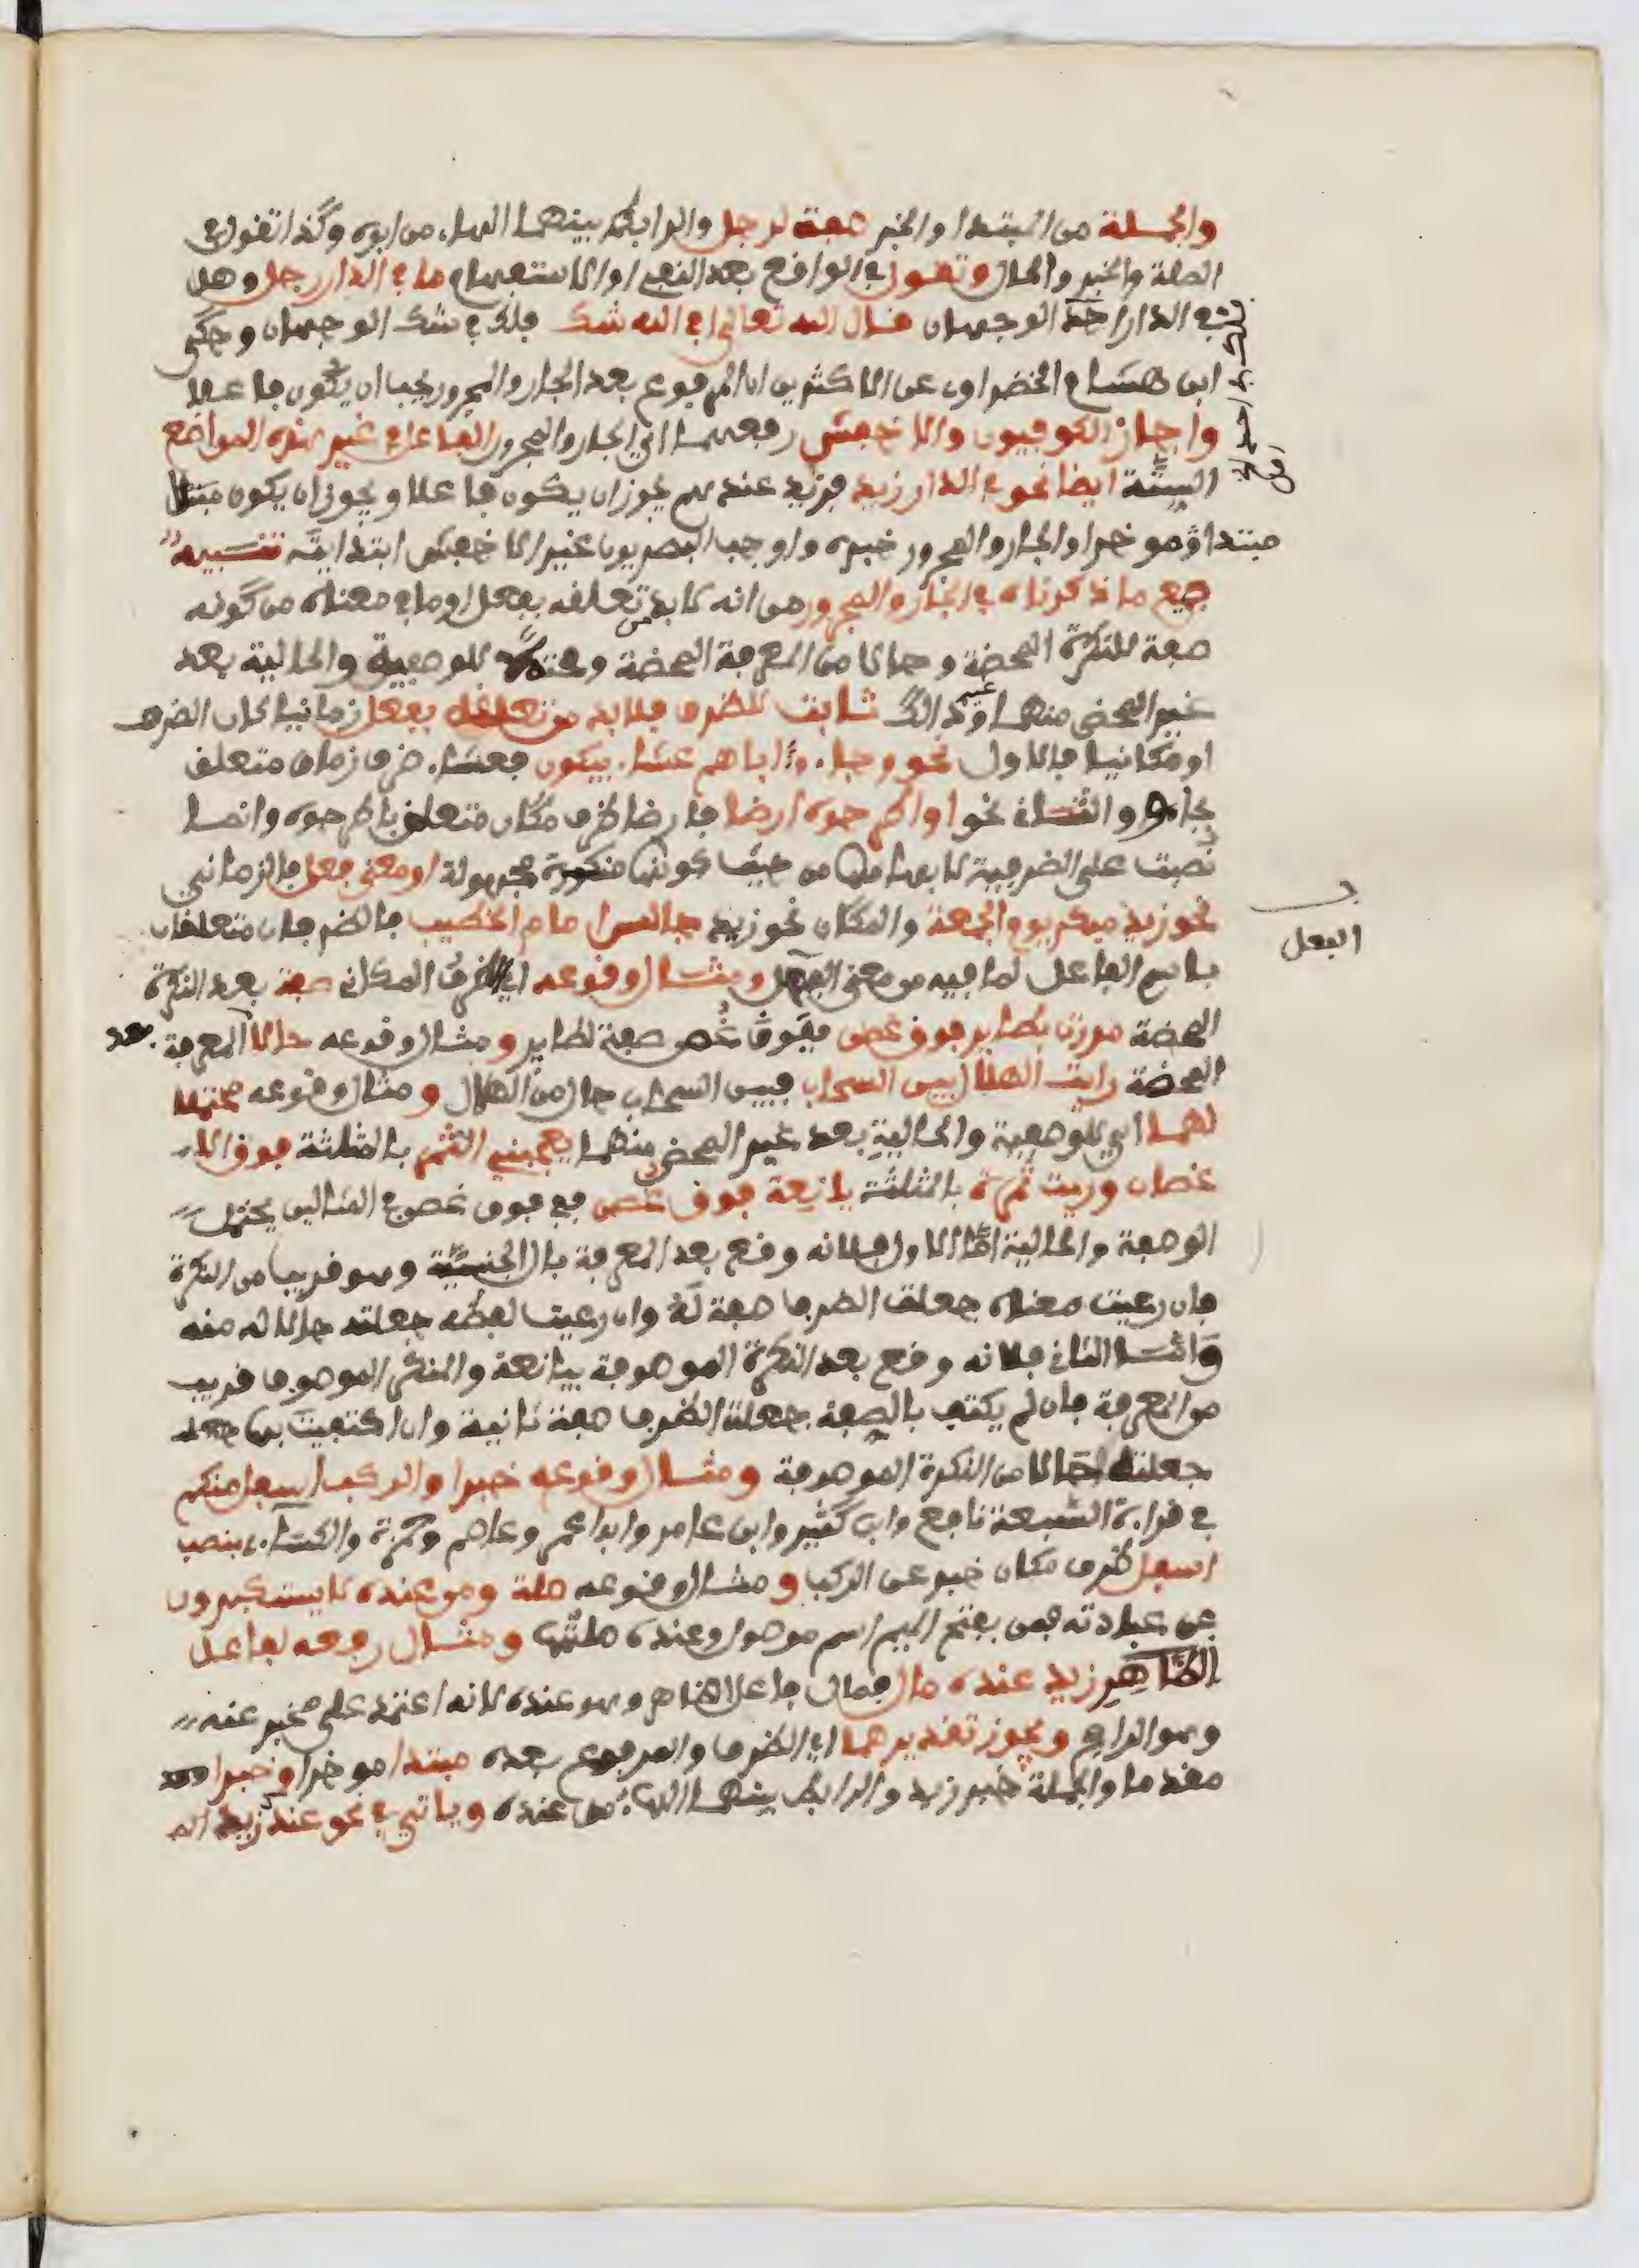 والجملة من المبتدا والخبر صفة لرجل والرابط بينهما الهاء من ابوه وكذا تقول في
الصلة والخبر والحال وتقول في الواقع بعد النفي او الاستفهام ما في الدار رجل وهل
في الدار احد الوجهان قال الله تعالى افي الله شك فلك في شك الوجهان وحكى
ابن هشام الخضراوي عن الاكثرين ان المرفوع بعد الجار والمجرور يجب ان يكون فاعلا
واجاز الكوفيون والاخفش رفعهما اي الجار والمجرور الفاعل في غير هذه المواضع
الستة ايضا نحو في الدار زيد فزيد عندهم يجوز ان يكون فاعلا ويجوز ان يكون
مبتدا مؤخرا والجار والمجرور خبره واوجب البصريون غير الاخفش ابتدائيته تنبيه
جميع ما ذكرناه في الجار والمجرور من انه لا بد من تعلقه بفعل او ما في معناه من كونه
صفة للنكرة المحضة وحالا من المعرفة المحضة ومحتملا للوصفية والحالية بعد
غير المحض منهما وكذالك ثابت للظرف فلا بد من تعلقه بفعل زمانيا كان الظرف
او مكانيا فالاول نحو وجاءوا اباهم عشاء يبكون فعشاء ظرف زمان متعلق
بجاءوا والثاني نحو او اطرحوه ارضا فارضا ظرف مكان متعلق باطرحوه وانما
نصبت على الظرفية لابهامها من حيث كونها منكورة مجهولة او معنى فعل فالزماني
نحو زيد مبكر يوم الجمعة والمكان نحو زيد جالس امام الخطيب فالظرفان متعلقان
الفعل
باسم الفاعل لما فيه من معنى الفعل ومثال وقوعه اي الظرف المكاني صفة بعد النكرة
المحضة مررت بطاير فوق غصن ففوق غصن صفة لطاير ومثال وقوعه حالا بعد المعرفة
المحضة رايت الهلال بين السحاب فبين السحاب حال من الهلال ومثال وقوعه محتملا
لهما اي للوصفية والحالية بعد غير المحض منهما يعجبني الثمر بالمثلثة فوق الا
غصان ورايت ثمرة بالمثلثة يانعة فوق غصن ففوق غصن في المثالين يحتمل
الوصفية والحالية اما الاول فلانه وقع بعد المعرفة بال الجنسية وهو قريب من النكرة
فان رعيت معناه جعلت الظرف صفة له وان رعيت لفظه جعلته حالا منه
واما الثاني فلانه وقع بعد النكرة الموصوفة بيانعة والمنكر الموصوف قريب
من المعرفة فان لم يكتف بالصفة جعلت الظرف صفة ثانية وان اكتفيت بها
جعلته حالا من النكرة الموصوفة ومثال وقوعه خبرا والركب اسفل منكم
في قراءة السبعة نافع وابن كثير وابن عامر وابو عمر وعاصم وحمزة والكساءي بنصب
اسفل ظرف مكان خبر عن الركب ومثال وقوعه صلة ومن عنده لا يستكبرون
عن عبادته فمن بفتح الميم اسم موصول وعنده صلتها ومثال رفعه لفاعل
الظاهر زيد عنده مال فمال فاعل الظاهر وهو عنده لانه اعتمد على مخبر عنه
وهو الراجح ويجوز تقديرهما اي الظرف والمرفوع بعده مبتدا مؤخرا وخبرا
مقدما والجملة خبر زيد والرابط بينهما الهاء من عنده وياتي في نحو عندك زيد